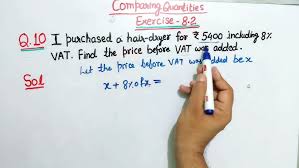 Comparing Quantities
Exercise - 8.2
Q.10 I purchased a hair-dryer for ₹ 5400 including 8%
VAT. Find the price before VAT was added.
Sol Let the price before VAT was added be x
x + 8% of x =